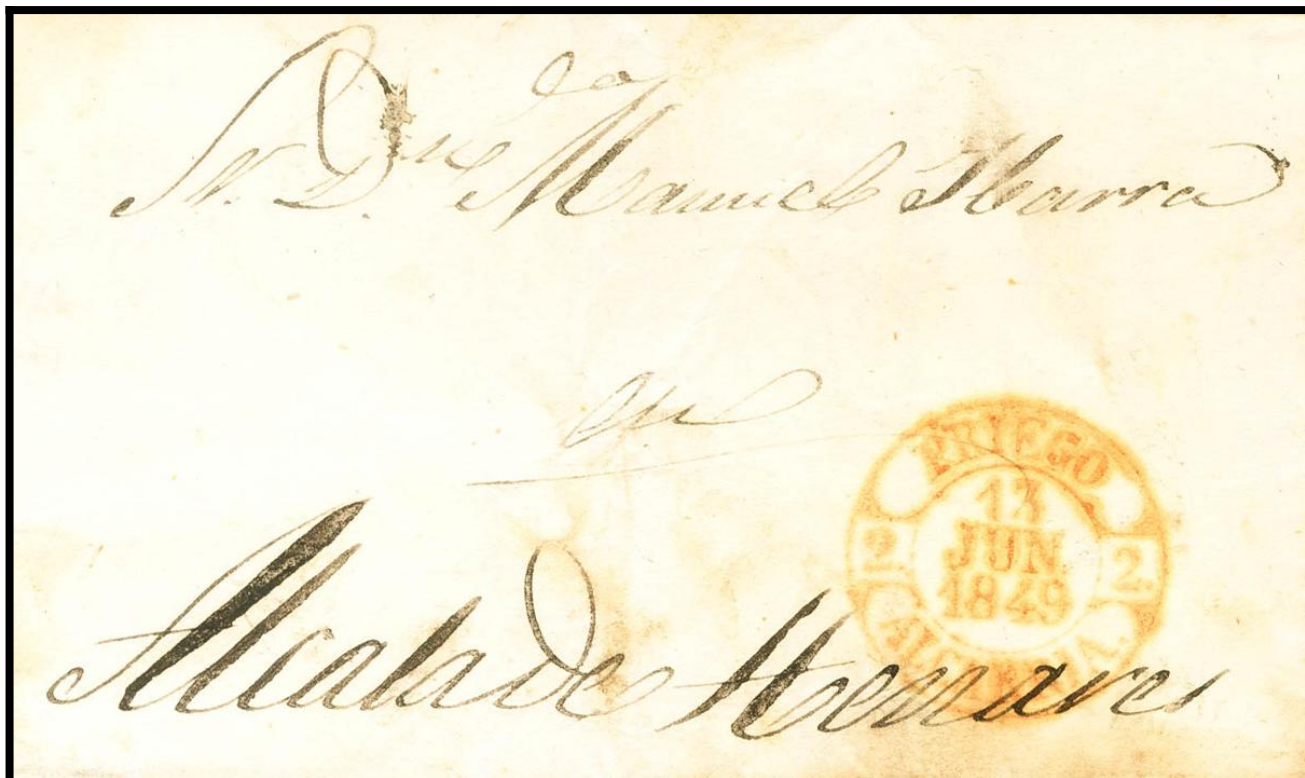 Sr. D.n Manuel Ybarra
en
Alcala de Henares
PRIEGO
13
JUN
1849
2 2
ALCARRIA.